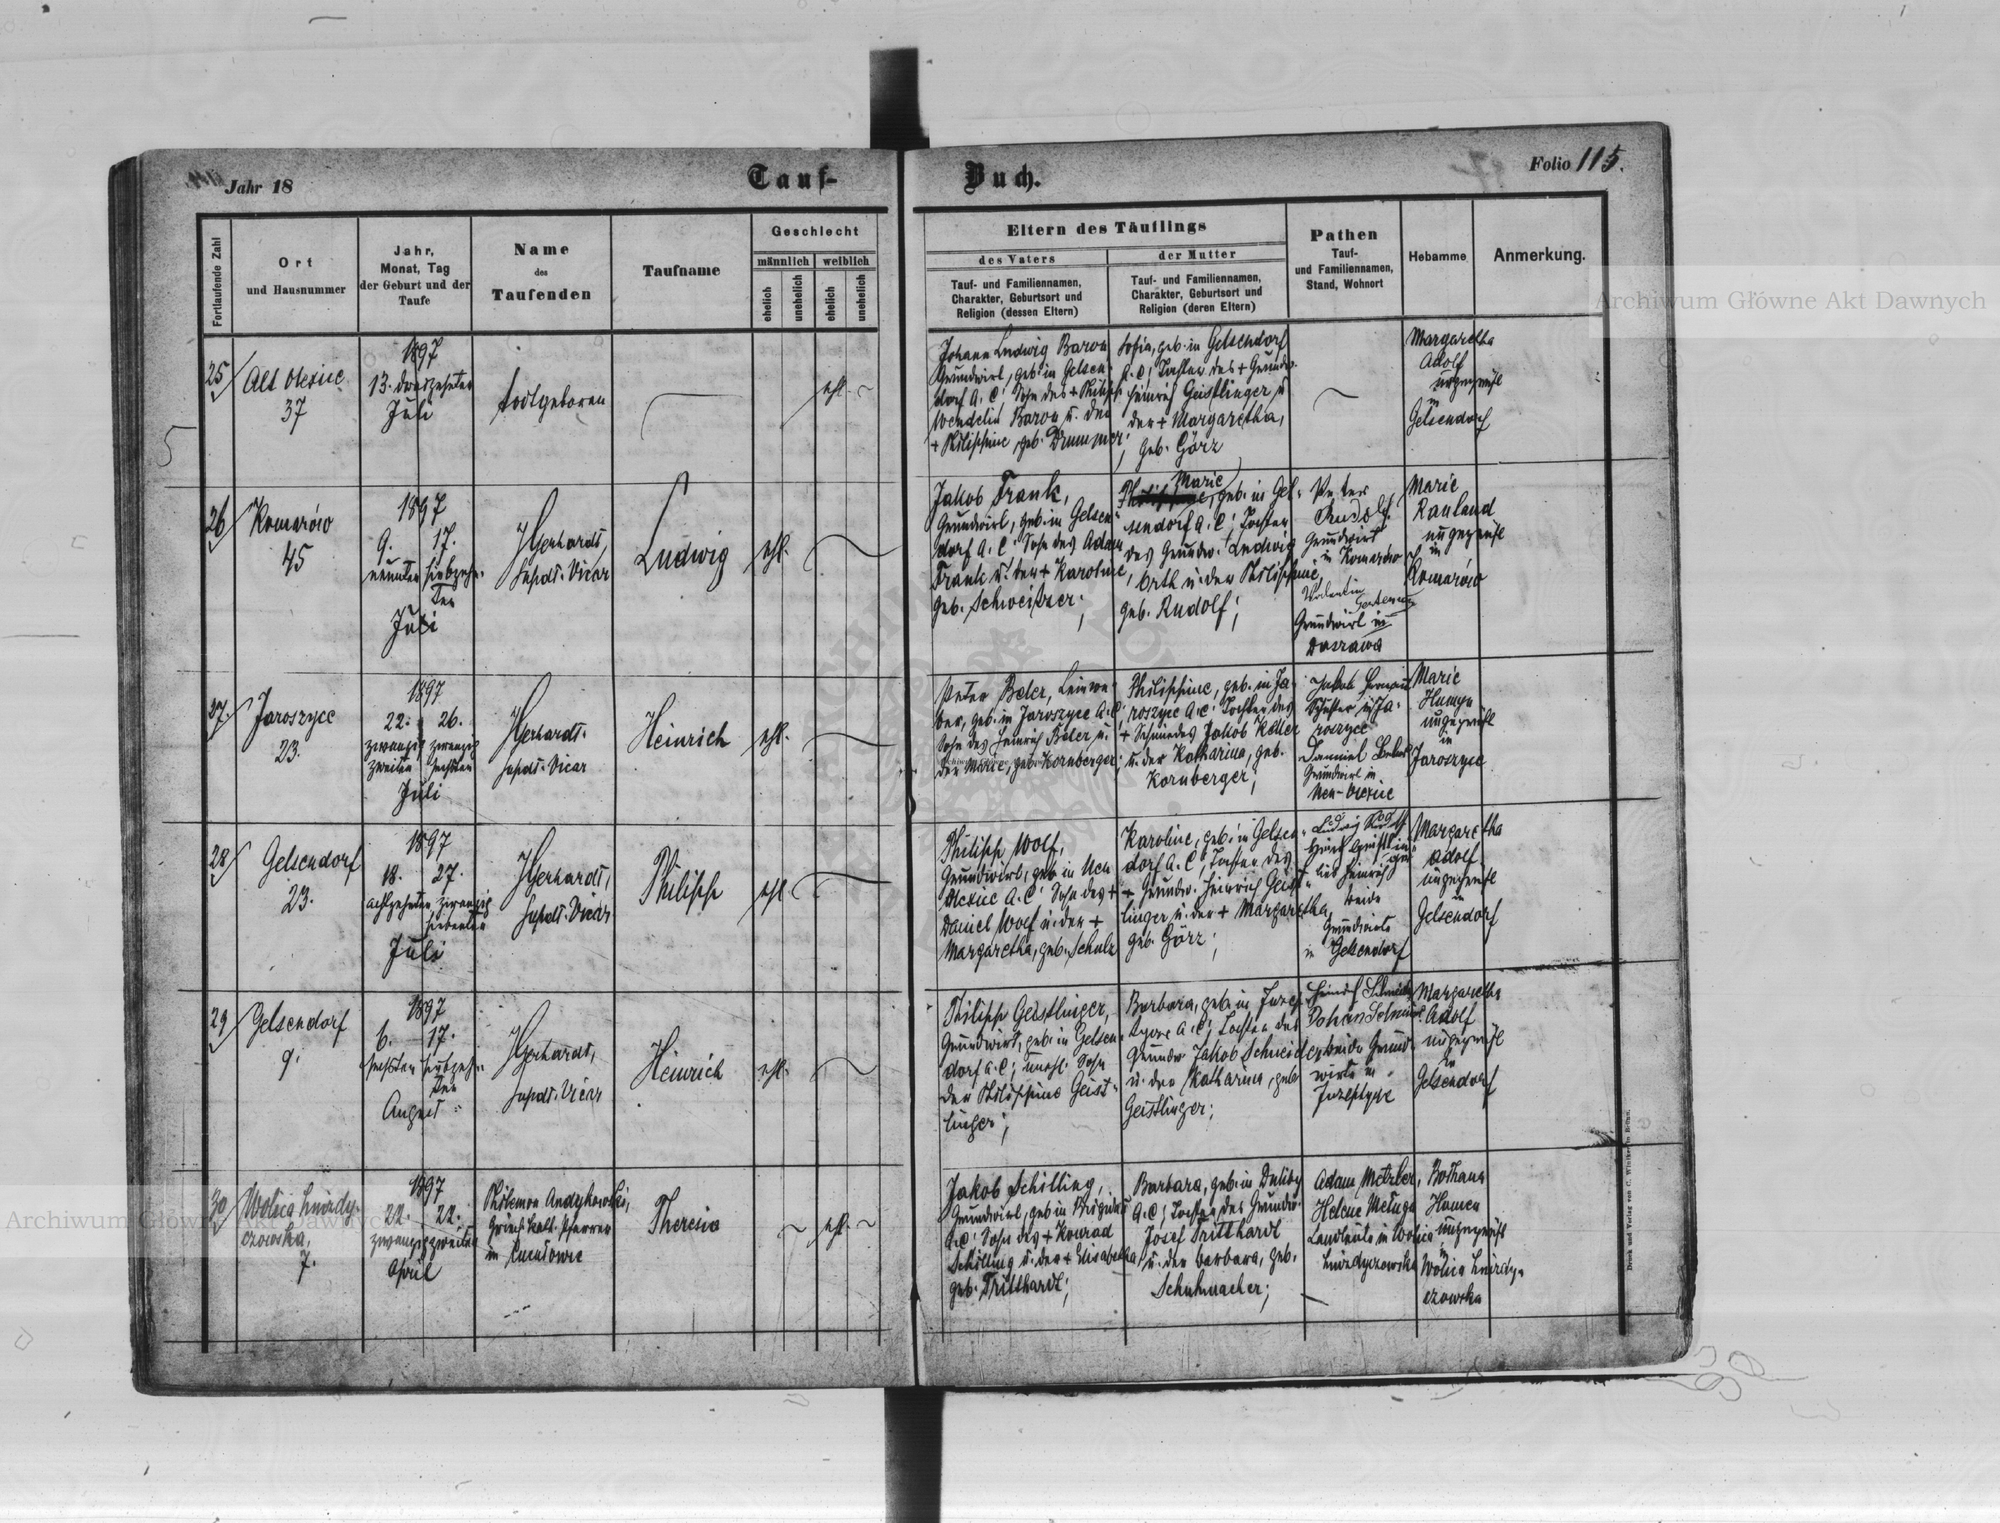 Jahr 18
Tauf-
Buch.
Folio 115.
Fortlaufende Zahl
Ort
und Hausnummer
Jahr,
Monat, Tag
der Geburt und der
Taufe
Name
des
Taufenden
Taufname
Geschlecht
männlich
weiblich
ehelich
unehelich
ehelich
unehelich
Eltern des Täuflings
des Vaters
der Mutter
Tauf- und Familiennamen,
Charakter, Geburtsort und
Religion (dessen Eltern)
Tauf- und Familiennamen,
Charakter, Geburtsort und
Religion (deren Eltern)
Pathen
Tauf-
und Familiennamen,
Stand, Wohnort
Hebamme
Anmerkung.
25
Alt Olexiec
37
1897
13. dreizehnter
Juli
todtgeboren
ehl.
Johann Ludwig Baron
Grundwirt, geb. in Gelsen-
dorf A. C; Sohn des + Philipp
Wendelin Baron u. der
+ Philippine, geb. Drummer;
Sofia, geb. in Gelsendorf
A. C; Tochter des + Grundw.
Heinrich Geistlinger u
der + Margaretha,
geb. Görz
Margaretha
Adolf
ungeprüft
in
Gelsendorf
26
Komarów
45
1897
9. 17.
neunter siebzehn-
ter
Juli
Gerhardt,
Suptdt. Vicar
Ludwig
ehl.
Jakob Frank,
Grundwirt, geb. in Gelsen-
dorf A. C; Sohn des Adam
Frank u. der + Karoline,
geb. Schweitzer;
Marie
geb. in Gel-
sendorf A. C; Tochter
des Grundw. Ludwig
Orth u. der Philippine,
geb. Rudolf;
Peter
Rudolf
Grundwirt
in Komarow
Grundwirt in
Daszawa
Marie
Rauland
ungeprüft
in
Komarów
27
Jaroszyce
23.
1897
22. 26.
zwanzig zwanzig
zweiten sechsten
Juli
Gerhardt.
Suptdt. Vicar
Heinrich
ehl.
Peter Beler, Leinwe-
ber, geb. in Jaroszyce A. C;
Sohn des Heinrich Beler u.
der Marie, geb. Kornberger;
Philippine, geb. in Ja-
roszyce A. C; Tochter des
+ Schmiedes Jakob Keller
u. der Katharina, geb.
Kornberger;
Jakob
in Ja-
roszyce
Daniel
Grundwirt in
Neu-Olexiec
Marie
ungeprüft
in
Jaroszyce
28
Gelsendorf
23.
1897
18. 27.
achtzehnten zwanzig
siebenten
Juli
Gerhardt,
Suptdt. Vicar
Philipp
ehl
Philipp Wolf,
Grundwirt, geb in Neu
Olexiec A. C; Sohn des +
Daniel Wolf u. der +
Margaretha, geb. Schulz
Karoline, geb. in Gelsen-
dorf A. C; Tochter des
+ Grundw. Heinrich Geist-
linger u. der + Margaretha
geb. Görz;
Ludwig
Heinrich
beide
Grundwirte
in Gelsendorf
Margaretha
Adolf
ungeprüft
in
Gelsendorf
29
Gelsendorf
9.
1897
6. 17.
sechsten siebzehn-
ten
August
Gerhardt,
Suptdt. Vicar
Heinrich
ehl.
Philipp Geistlinger,
Grundwirt, geb. in Gelsen-
dorf A. C; unehl. Sohn
der Philippine Geist-
linger;
Barbara, geb. in Jozef-
A. C; Tochter des
Grundw Jakob Schneider
u. der Katharina, geb
Geistlinger;
Johann
beide Grund-
wirte in
Margaretha
Adolf
ungeprüft
in
Gelsendorf
30
Wolica hnizdy-
czowska,
7.
1897
22. 22.
zwanzig zweiten
April
Philemon Andykowski,
Griech. kath. Pfarrer
in
Theresia
ehl.
Jakob Schilling,
Grundwirt, geb in Brigidau
A. C; Sohn des + Konrad
Schilling u. der + Elisabetha,
geb. Tritthardt;
Barbara, geb. in Duliby
A. C; Tochter des Grundw.
Josef Tritthardt
u. der Barbara, geb.
Schuhmacher;
Adam Metzler,
Helene
Landleute in Wolica
hnizdyczowska
ungeprüft
in
Wolica hnizdy-
czowska
Druck und Verlag von C. Winiker in Brünn.
Archiwum Główne Akt Dawnych
Archiwum Główne Akt Dawnych